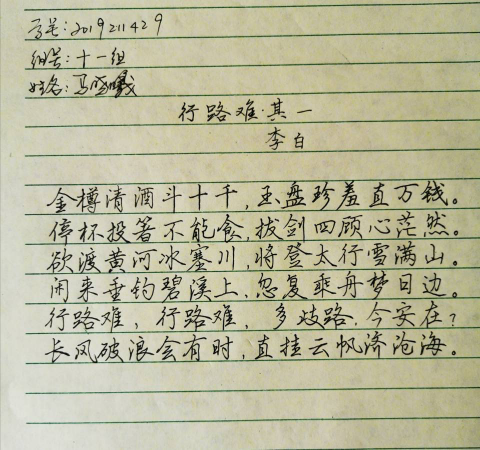 学号:2019211429
组号:十一组
姓名:马晓曦
行路难·其一
李白
金樽清酒斗十千,玉盘珍羞直万钱。
停杯投箸不能食,拔剑四顾心茫然。
欲渡黄河冰塞川,将登太行雪满山。
闲来垂钓碧溪上,忽复乘舟梦日边。
行路难,行路难,多歧路,今安在?
长风破浪会有时,直挂云帆济沧海。